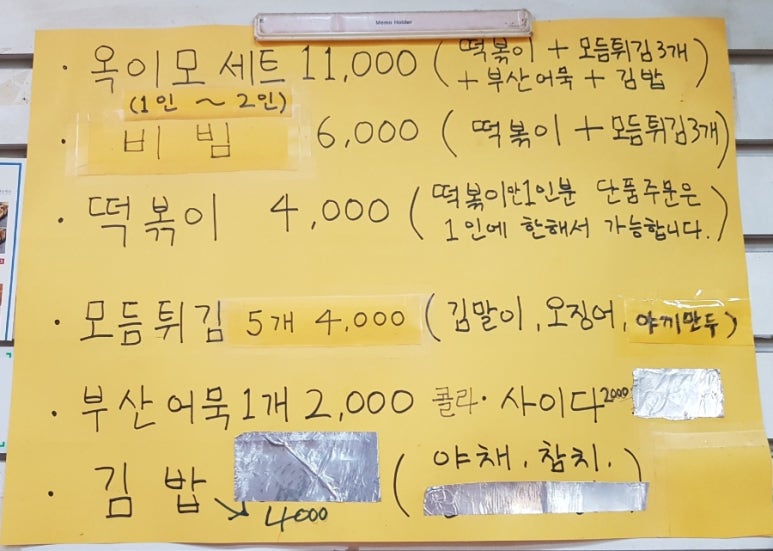 Memo Holder
· 옥이모 세트 11,000 (떡볶이 + 모듬튀김 3개
+ 부산어묵 + 김밥)
(1인 ~ 2인)
· 비빔 6,000 (떡볶이 + 모듬튀김 3개)
· 떡볶이 4,000 (떡볶이만 1인분 단품주문은
1인에 한해서 가능합니다.)
· 모듬튀김 5개 4,000 (김말이, 오징어, 야끼만두)
· 부산어묵 1개 2,000 콜라 · 사이다 2000
· 김밥 (야채, 참치,)
4000